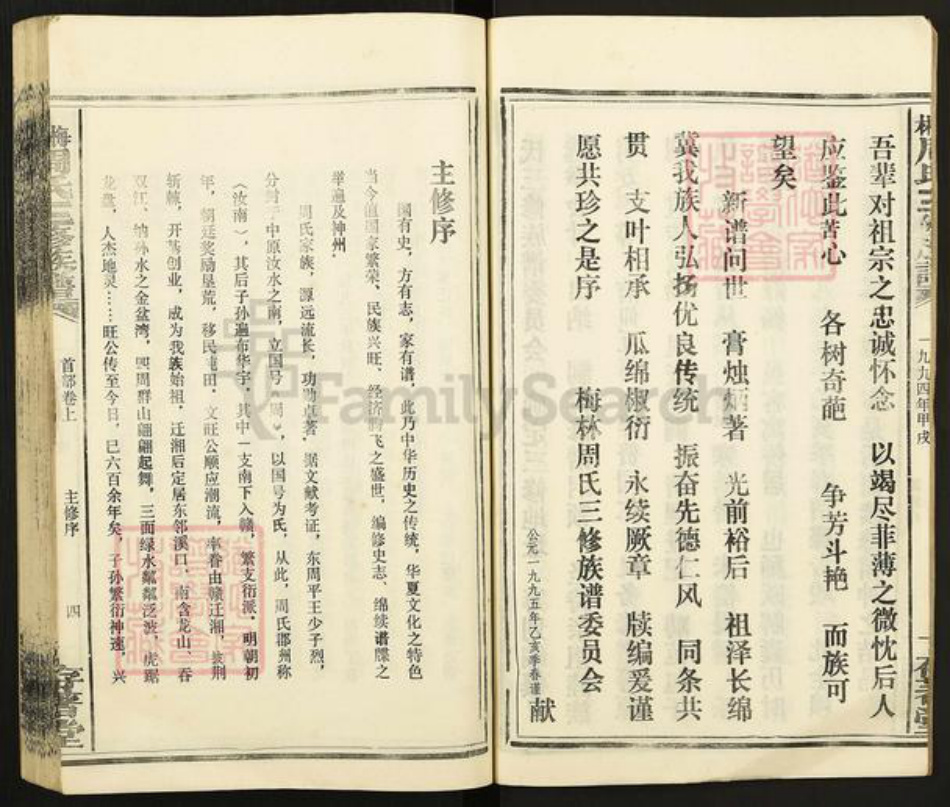 吾辈对祖宗之忠诚怀念 以竭尽菲薄之微忱后人
应鉴此苦心 各树奇葩 争芳斗艳 而族可
望矣
新谱问世 膏烛炳著 光前裕后 祖泽长绵
冀我族人弘扬优良传统 振奋先德仁风 同条共
贯 支叶相承 瓜绵椒衍 永续厥章 牍编爱谨
愿共珍之是序 梅林周氏三修族谱委员会
公元一九九五年乙亥季春谨 献
一九九四年甲戌
主修序
国有史,方有志,家有谱,此乃中华历史之传统,华夏文化之特色
当今值国家繁荣、民族兴旺、经济腾飞之盛世,编修史志、绵续谱牒之
举遍及神州.
周氏家族,源远流长,功勋卓著.据文献考证,东周平王少子烈,
分封于中原汝水之南,立国号“周”,以国号为氏,从此,周氏郡州称
(汝南),其后子孙遍布华宇,其中一支南下入赣,繁支衍派,明朝初
年,朝廷奖励垦荒,移民屯田,文旺公顺应潮流,率眷由赣迁湘,披荆
斩棘,开基创业,成为我族始祖,迁湘后定居东邻溪口,南含龙山、吞
双江、纳孙水之金盆湾,四周群山翩翩起舞,三面绿水粼粼泛波,虎踞
龙盘,人杰地灵……旺公传至今日,已六百余年矣,子孙繁衍神速,兴
梅周氏三修族谱
首部卷上
主修序
四
FamilySearch